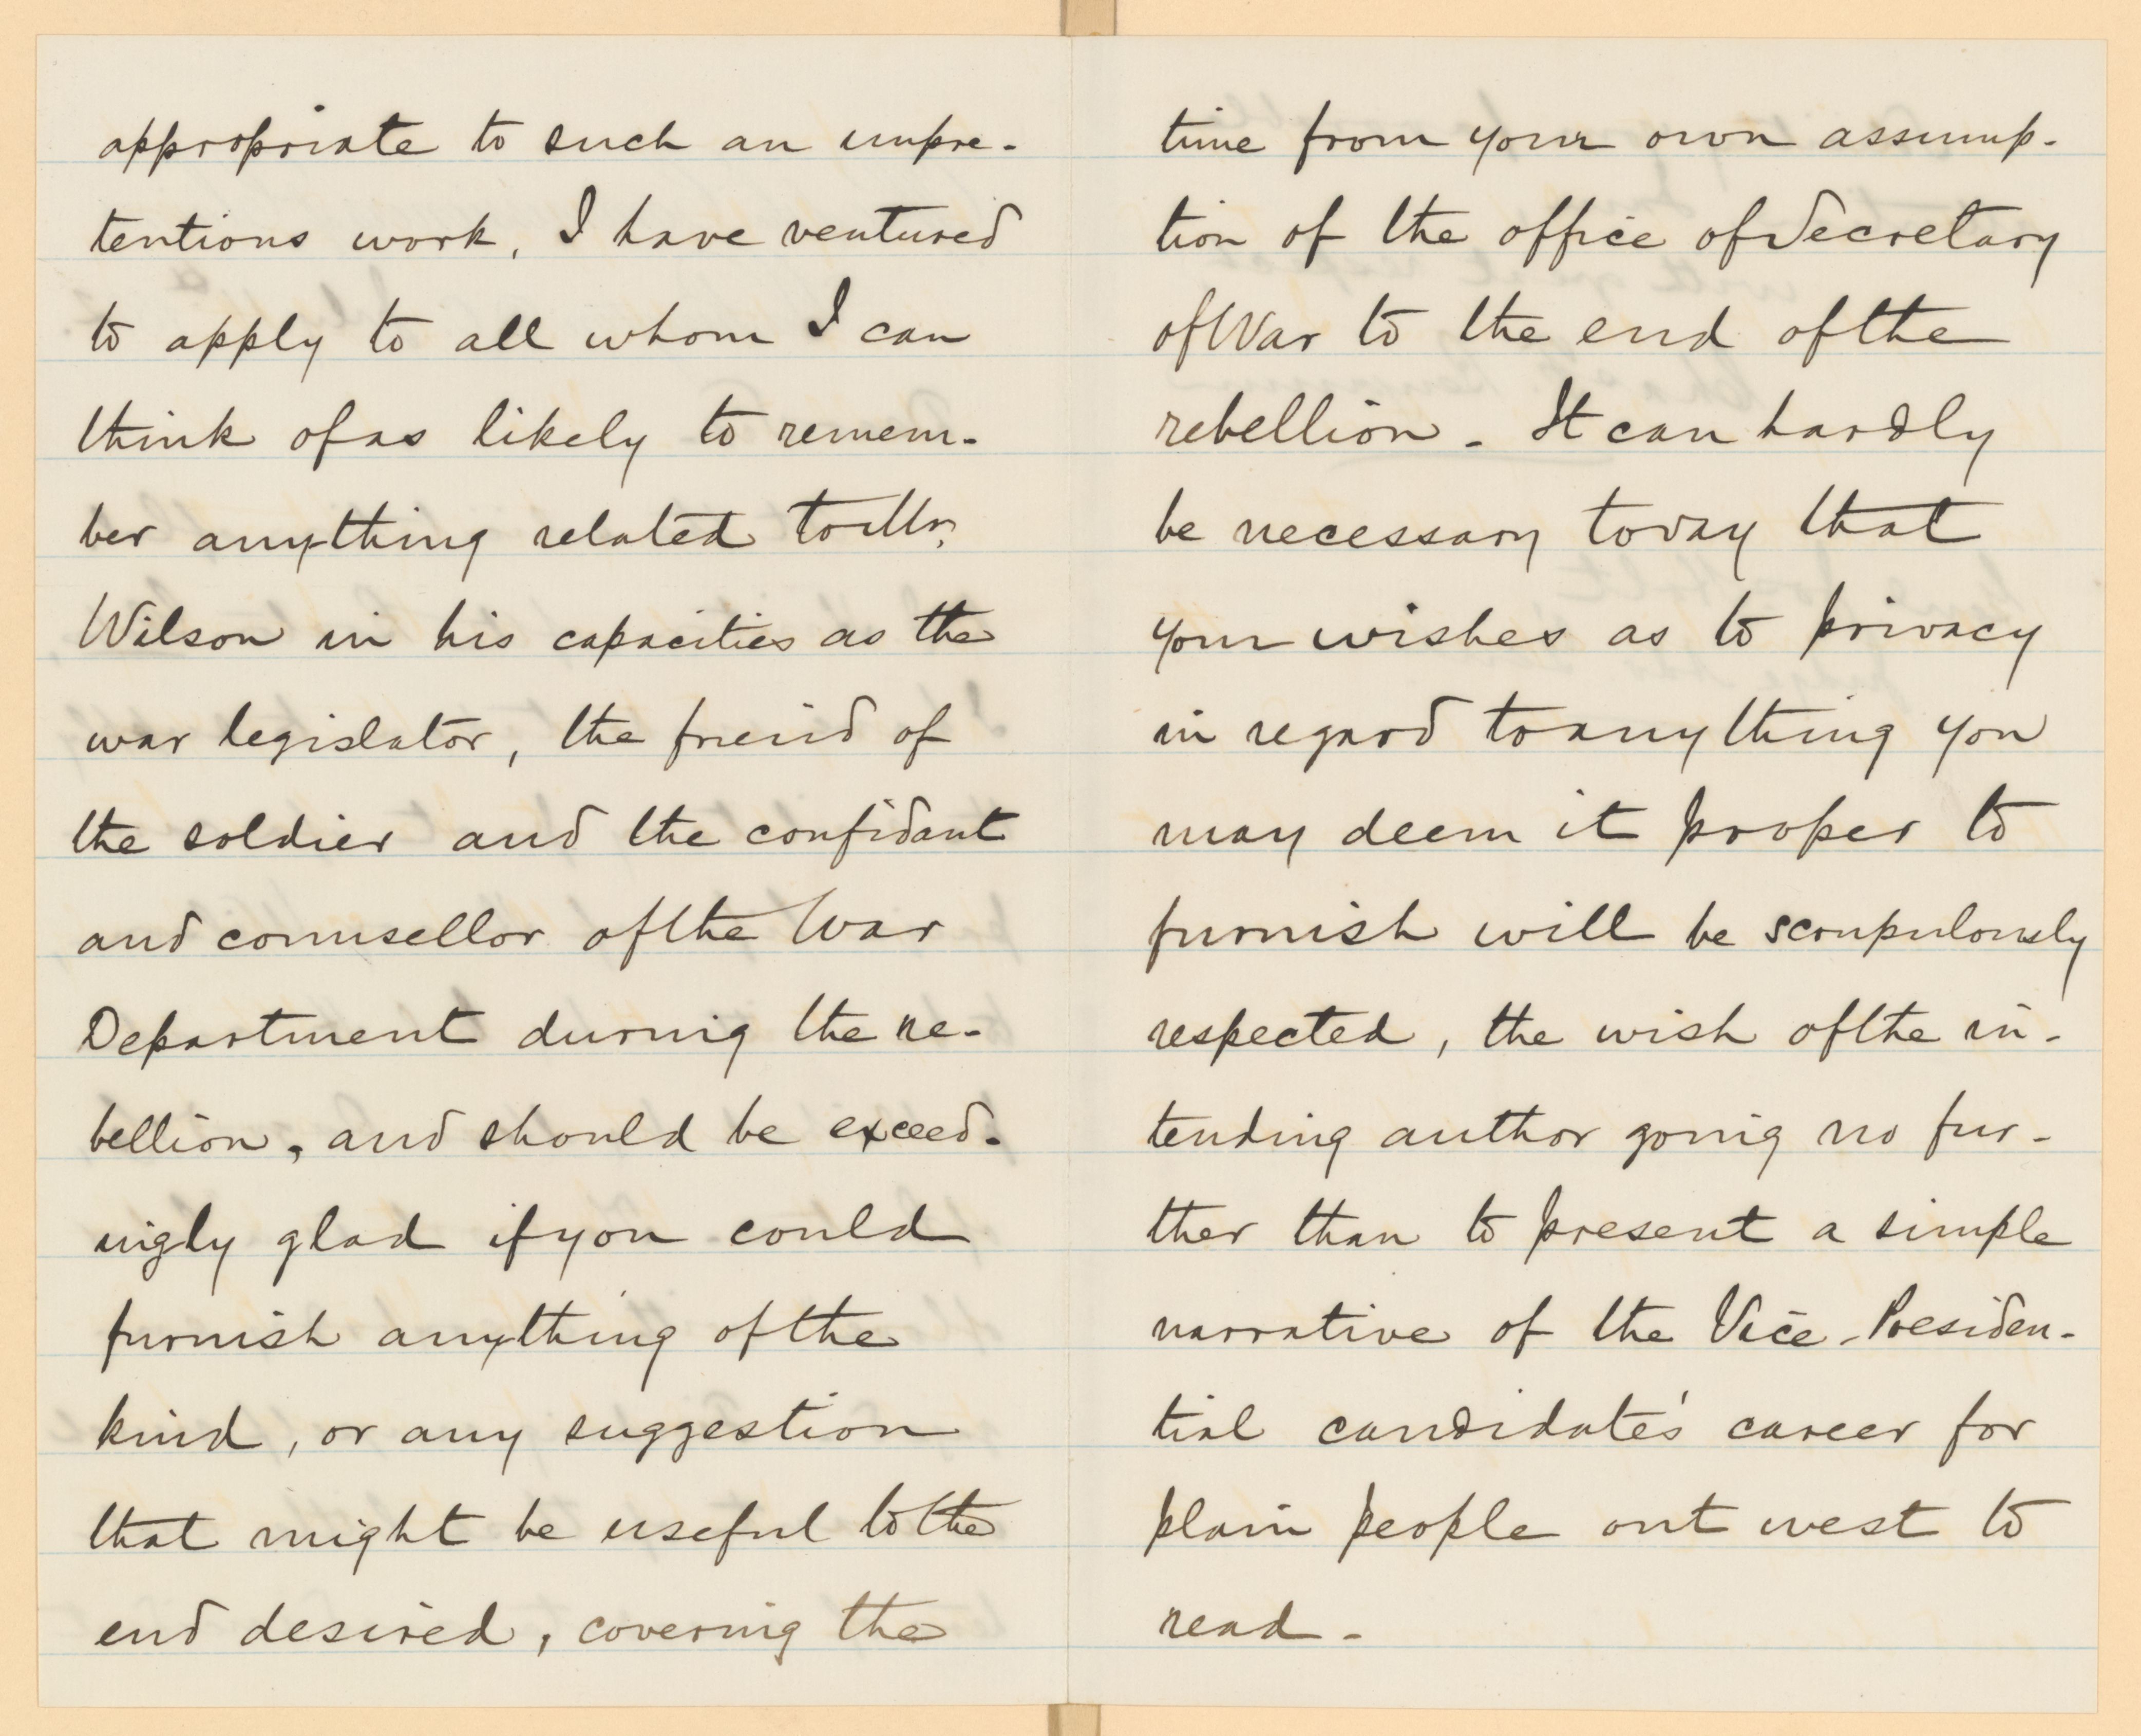 appropriate to such an unpre-
tentious work, I have ventured
to apply to all whom I can
think of as likely to remem-
ber anything related to Mr.
Wilson in his capacities as the
war legislator, the friend of
the soldier and the confidant
and counsellor of the War
Department during the re-
bellion, and should be exceed-
ingly glad if you could
furnish anything of the
kind, or any suggestion
that might be useful to the
end desired, covering the
time from your own assump-
tion of the office of Secretary
of War to the end of the
rebellion - It can hardly
be necessary to say that
your wishes as to privacy
in regard to anything you
may deem it proper to
furnish will be scrupulously
respected, the wish of the in-
tending author going no fur-
ther than to present a simple
narrative of the Vice-Presiden-
tial candidate's career for
plain people out west to
read -